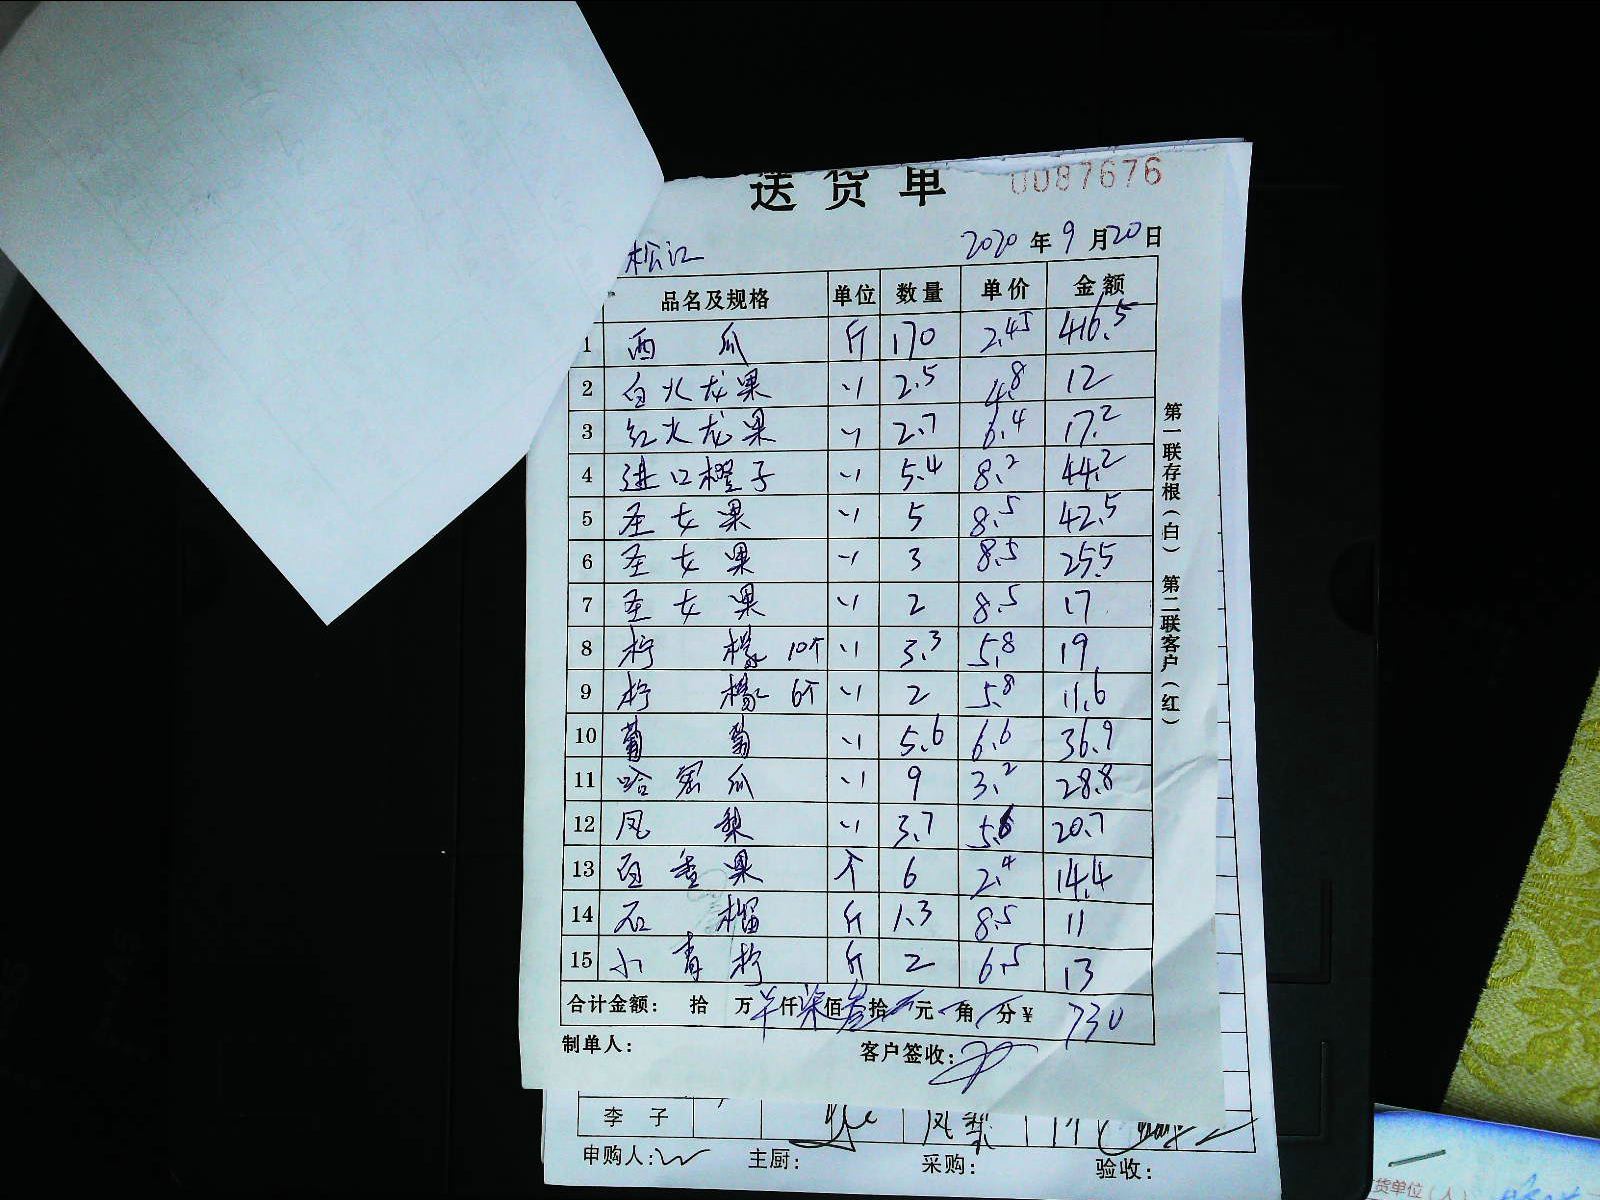 送货单 0087676
松江 2020年9月20日
品名及规格 单位 数量 单价 金额
1 西瓜 斤 170 2.45 416.5
2 白火龙果 〃 2.5 4.8 12
3 红火龙果 〃 2.7 6.4 17.2
4 进口橙子 〃 5.4 8.2 44.2
5 圣女果 〃 5 8.5 42.5
6 圣女果 〃 3 8.5 25.5
7 圣女果 〃 2 8.5 17
8 柠檬 10个 〃 3.3 5.8 19
9 柠檬 6个 〃 2 5.8 11.6
10 葡萄 〃 5.6 6.6 36.9
11 哈密瓜 〃 9 3.2 28.8
12 凤梨 〃 3.7 5.6 20.7
13 百香果 个 6 2.4 14.4
14 石榴 斤 1.3 8.5 11
15 小青柠 斤 2 6.5 13
合计金额: 拾 万 仟柒佰叁拾 元 角 分¥ 730
制单人: 客户签收:
第一联存根(白) 第二联客户(红)
李子 凤梨
申购人: 主厨: 采购: 验收:
货单位(人)